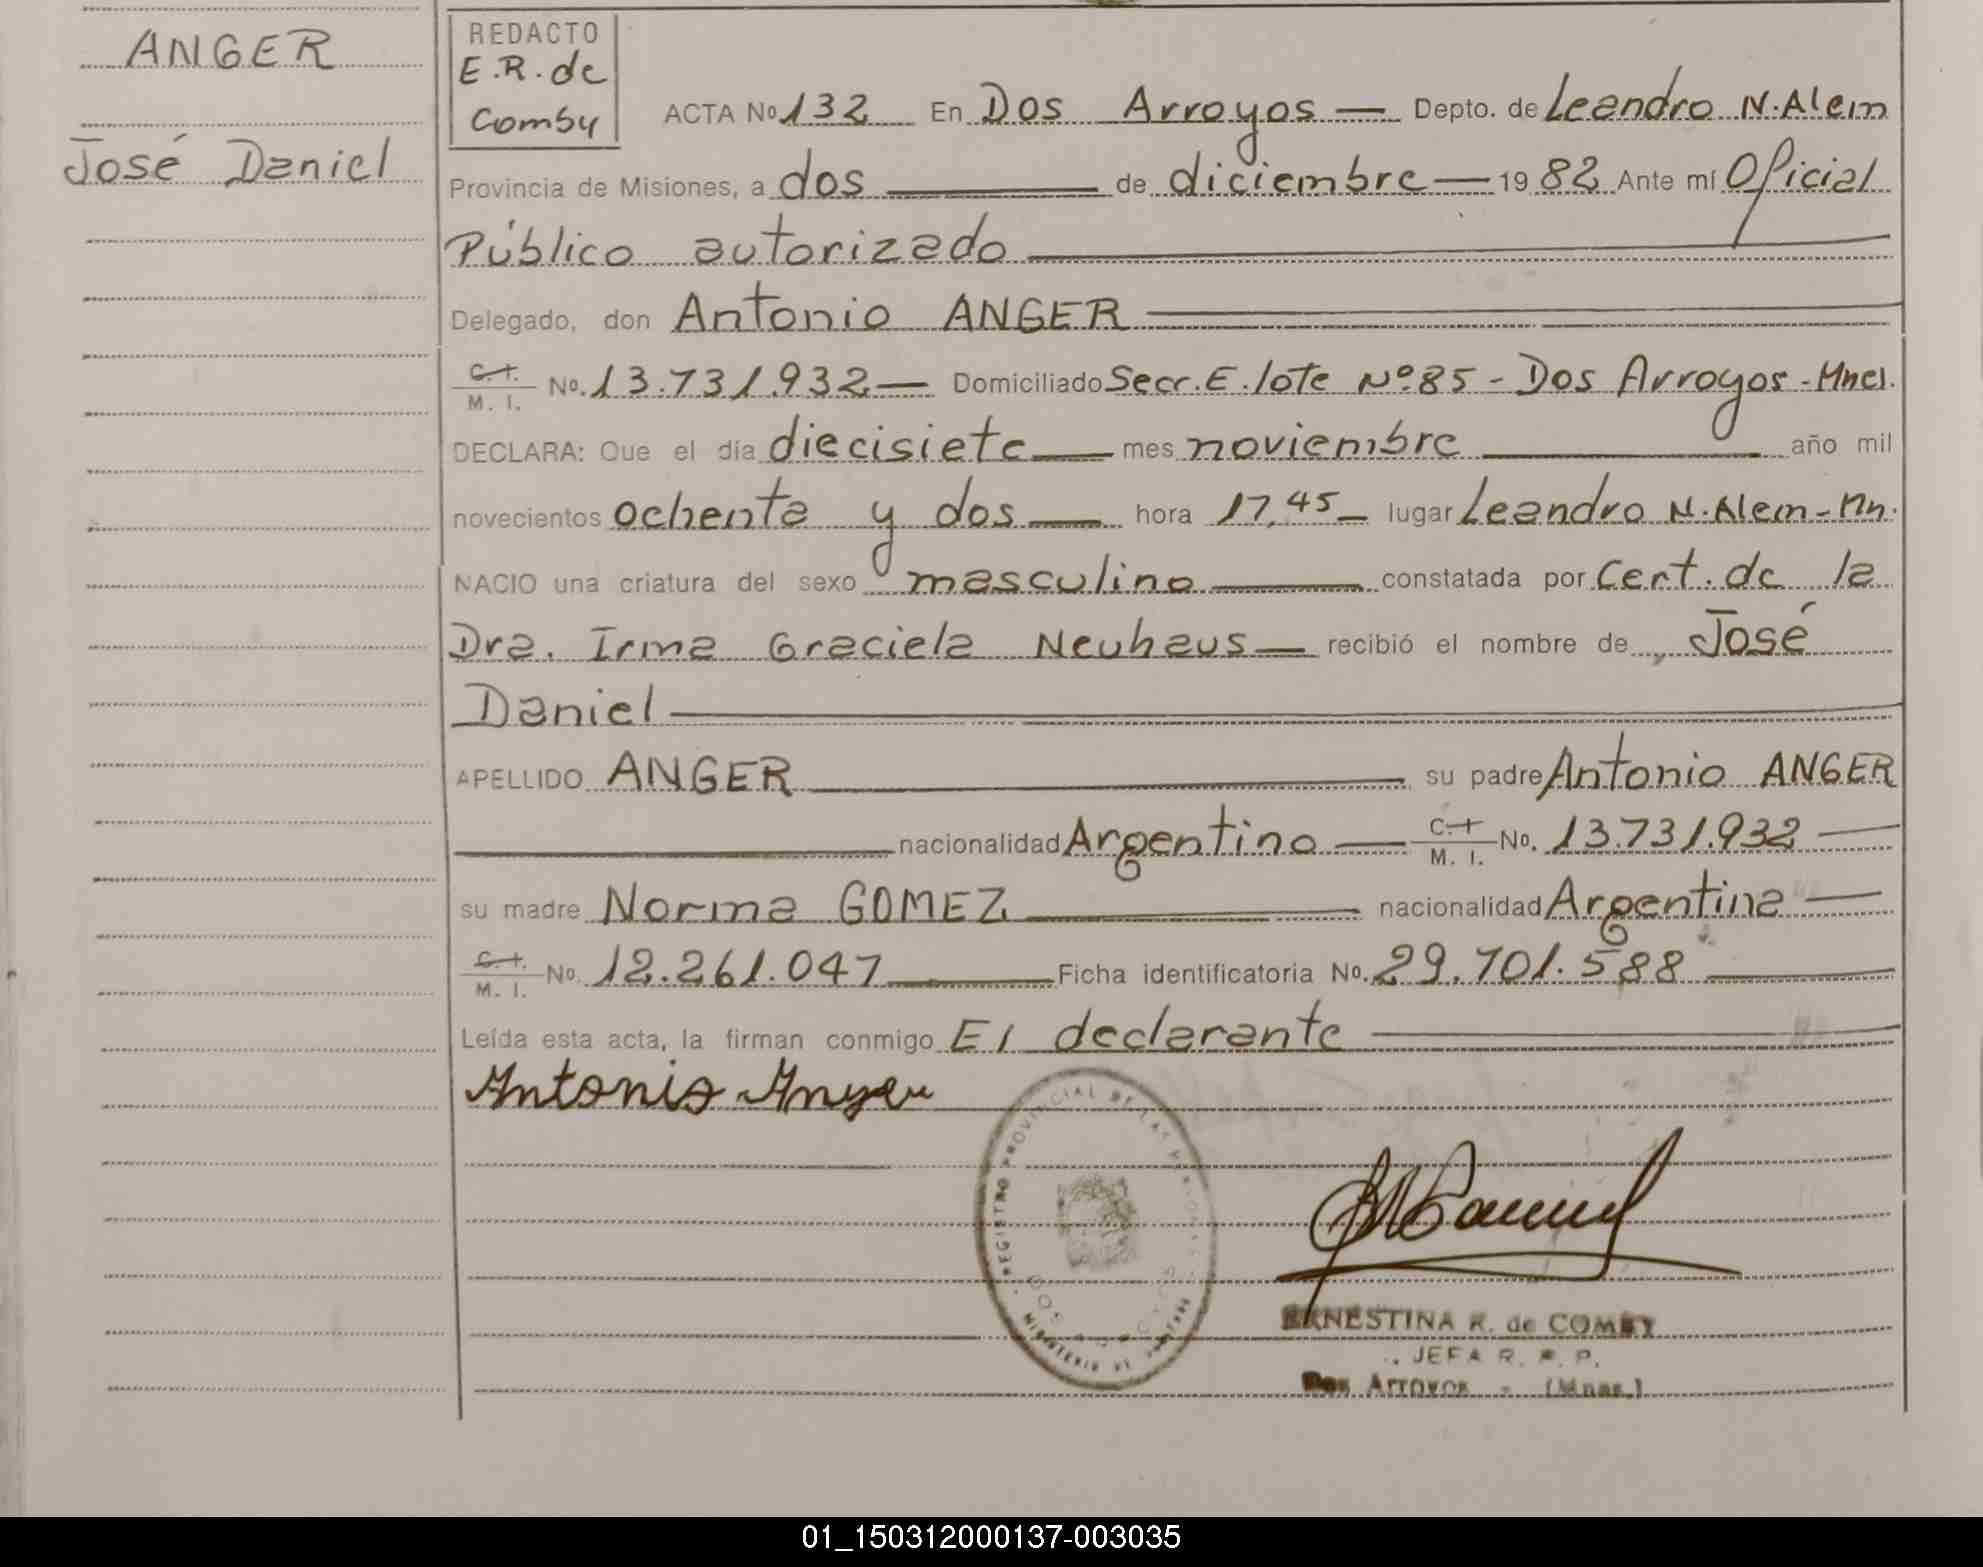 ANGER
José Daniel
REDACTO
E.R. de
Comby
ACTA No 132 En Dos Arroyos — Depto. de Leandro N. Alem
Provincia de Misiones, a dos — de diciembre — 1982 Ante mí Oficial
Público autorizado
Delegado, don Antonio ANGER
C. I. / M. I. No. 13.731.932 — Domiciliado Secc. E. lote Nº 85 - Dos Arroyos - Mnes.
DECLARA: Que el día diecisiete — mes noviembre — año mil
novecientos ochenta y dos — hora 17,45 — lugar Leandro N. Alem - Mn.
NACIO una criatura del sexo masculino — constatada por Cert. de la
Dra. Irma Graciela Neuhaus — recibió el nombre de José
Daniel
APELLIDO ANGER — su padre Antonio ANGER
— nacionalidad Argentino — C. I. / M. I. No. 13.731.932 —
su madre Norma GOMEZ — nacionalidad Argentina —
C. I. / M. I. No. 12.261.047 — Ficha identificatoria No. 29.701.588 —
Leída esta acta, la firman conmigo El declarante —
Antonio Anger
REGISTRO PROVINCIAL DE LAS PERSONAS
MINISTERIO DE
DOS ARROYOS
ERNESTINA R. de COMBY
JEFA R. P. P.
Dos Arroyos - (Mnes.)
01_150312000137-003035